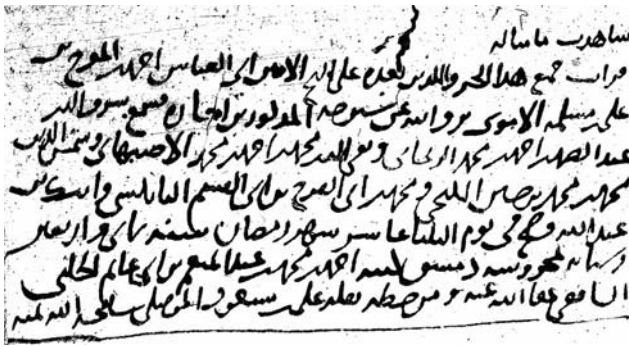 شاهدت ما مثاله
قرات جميع هذا الجزو واللذين بعده على الامين ابي العباس احمد بن المفرج بن
علي بن مسلمه الاموي بروايته عن شيوخه المذكورين اجازه فسمع شرف الدين
احمد محمد وتقي الدين محمد احمد محمد الاصبهاني وشمس الدين
محمد محمد بن البلخي ومحمد ابي الفرج بن ابي القسم النابلسي
عبد الله وصح في يوم الثلثا عاشر شهر رمضان سنه ثماني واربعين
وستمائه بمحروسه دمشق كتبه احمد محمد عبد المنعم بن ابي غانم الحلبي
الشافعي عفا الله عنه ومن خطه نقله علي بن مسعود الموصلي سامحه الله بمنه